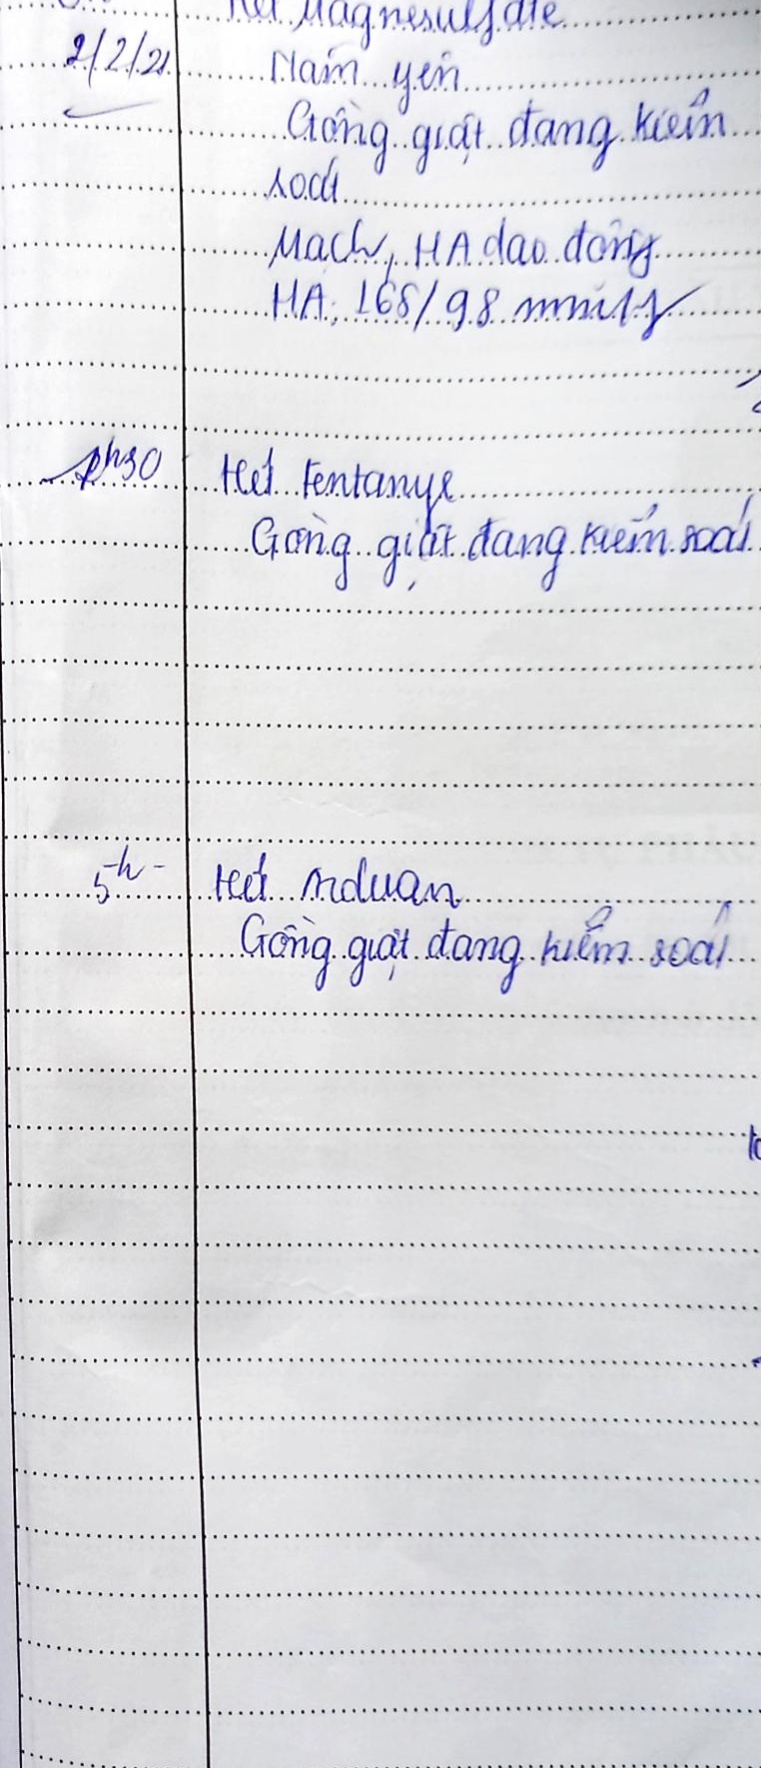 Hết Magnesulfate
2/2/21 Nằm yên
Gồng giật đang kiểm
soát
Mạch, HA dao động
HA: 168/98 mmHg
h30 Hết Fentanyl
Gồng giật đang kiểm soát
5h Hết Arduan
Gồng giật đang kiểm soát